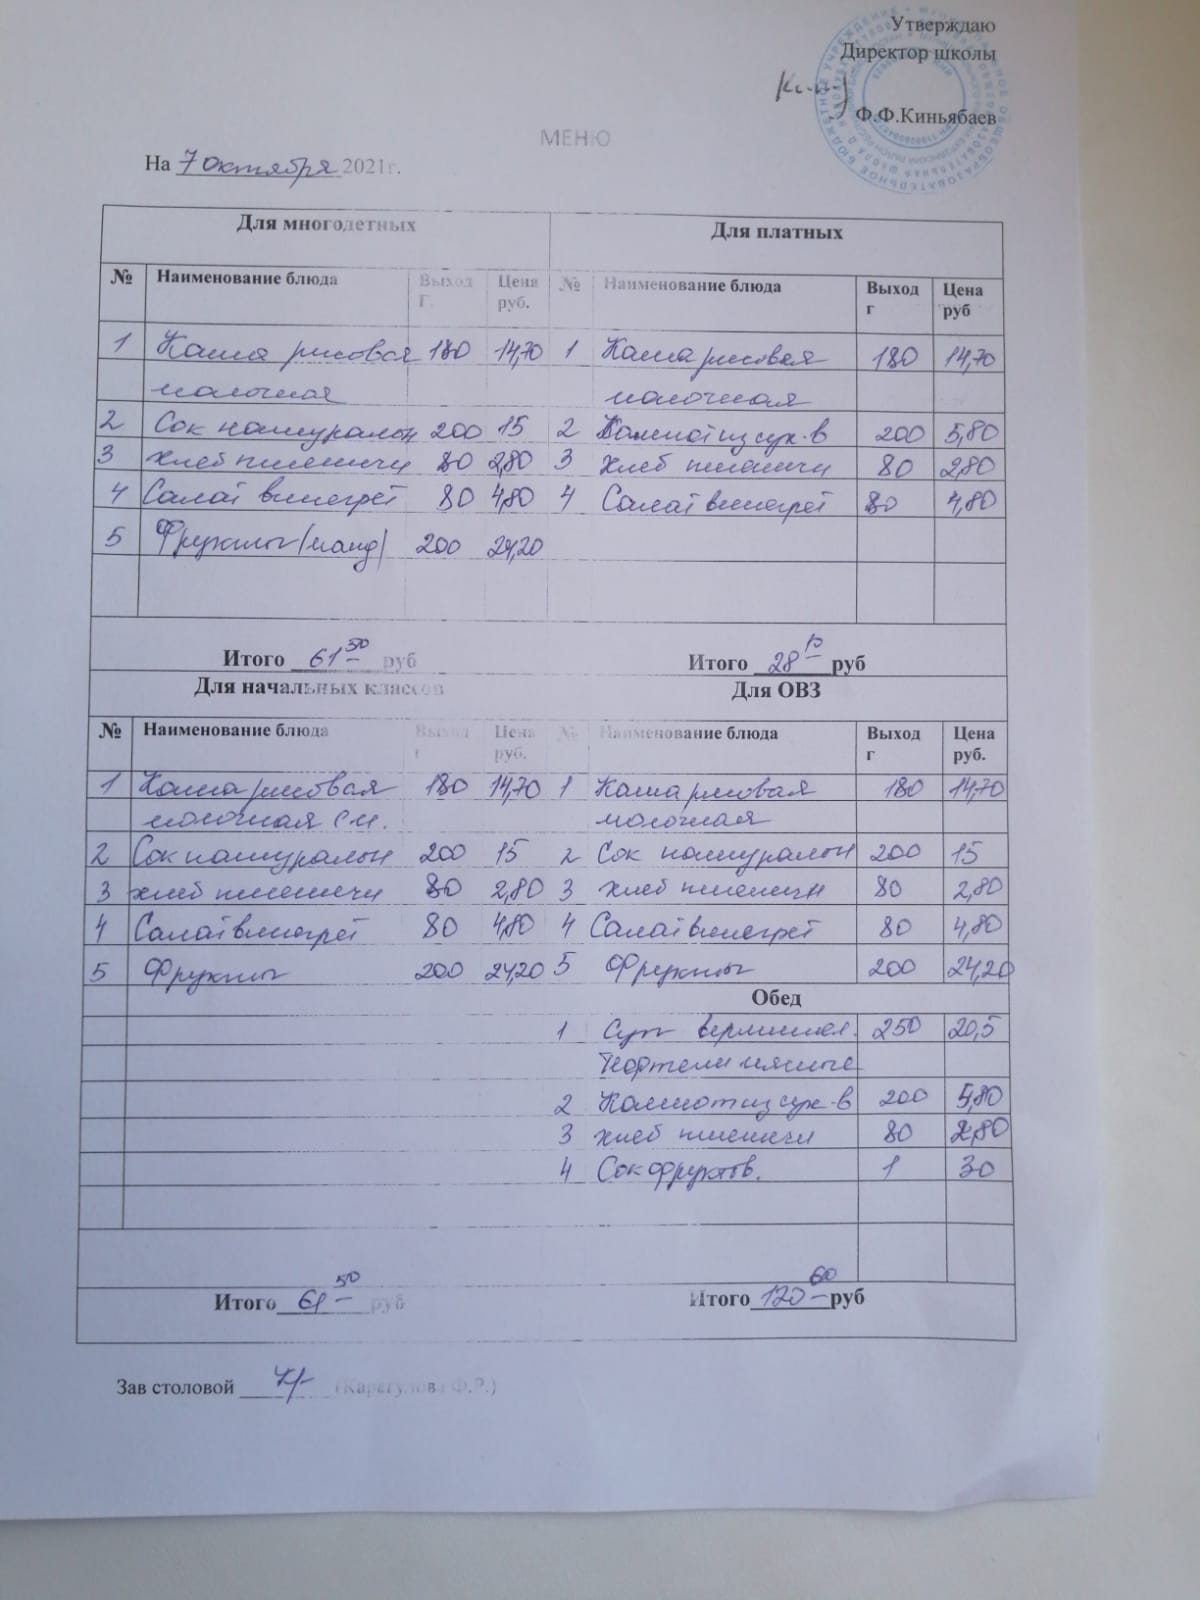 Утверждаю
Директор школы
Ф.Ф.Киньябаев
МЕНЮ
На 7 октября 2021г.
Для многодетных Для платных
№ Наименование блюда Выход Г. Цена руб. № Наименование блюда Выход г Цена руб
1 Каша рисовая 180 14,70 1 Каша рисовая 180 14,70
молочная молочная
2 Сок натуральн 200 15 2 Компот из сух-в 200 5,80
3 хлеб пшеничн 80 2,80 3 хлеб пшеничн 80 2,80
4 Салат винегрет 80 4,80 4 Салат винегрет 80 4,80
5 Фрукты (манд) 200 24,20
Итого 61 50 руб Итого 28 10 руб
Для начальных классов Для ОВЗ
№ Наименование блюда Выход г Цена руб. № Наименование блюда Выход г Цена руб.
1 Каша рисовая 180 14,70 1 Каша рисовая 180 14,70
молочная с м. молочная
2 Сок натуральн 200 15 2 Сок натуральн 200 15
3 хлеб пшеничн 80 2,80 3 хлеб пшеничн 80 2,80
4 Салат винегрет 80 4,80 4 Салат винегрет 80 4,80
5 Фрукты 200 24,20 5 Фрукты 200 24,20
Обед
1 Суп вермишел. 250 20,5
Тефтели мясные
2 Компот из сух-в 200 5,80
3 хлеб пшеничн 80 2,80
4 Сок фруктов. 1 30
Итого 61 50 руб Итого 120 60 руб
Зав столовой (Карагулова Ф.Р.)